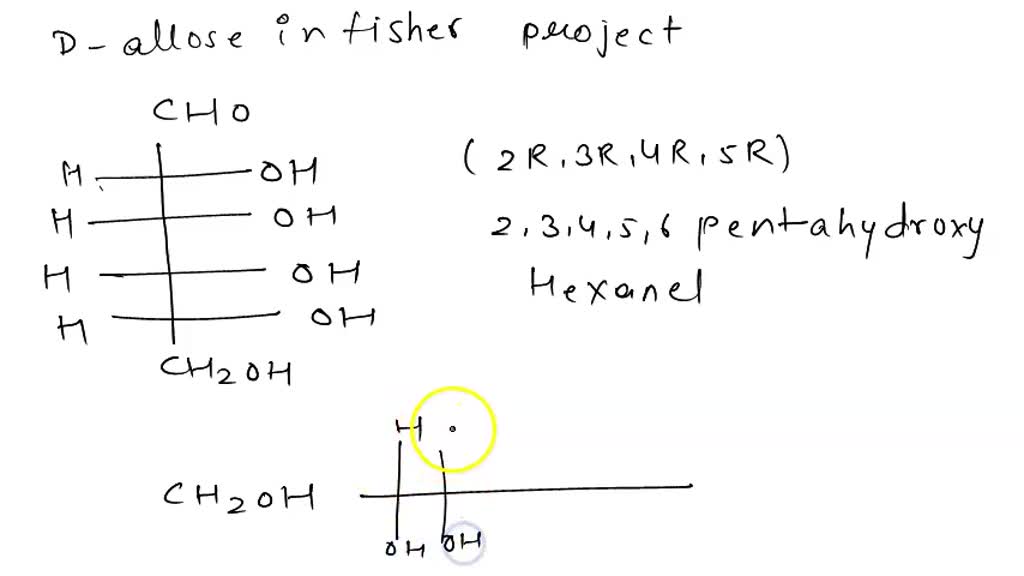 D-allose in fisher project
CHO
H OH
(2R,3R,4R,5R)
H OH
2,3,4,5,6 pentahydroxy
H OH
Hexanel
H OH
CH2OH
H
CH2OH
OH OH